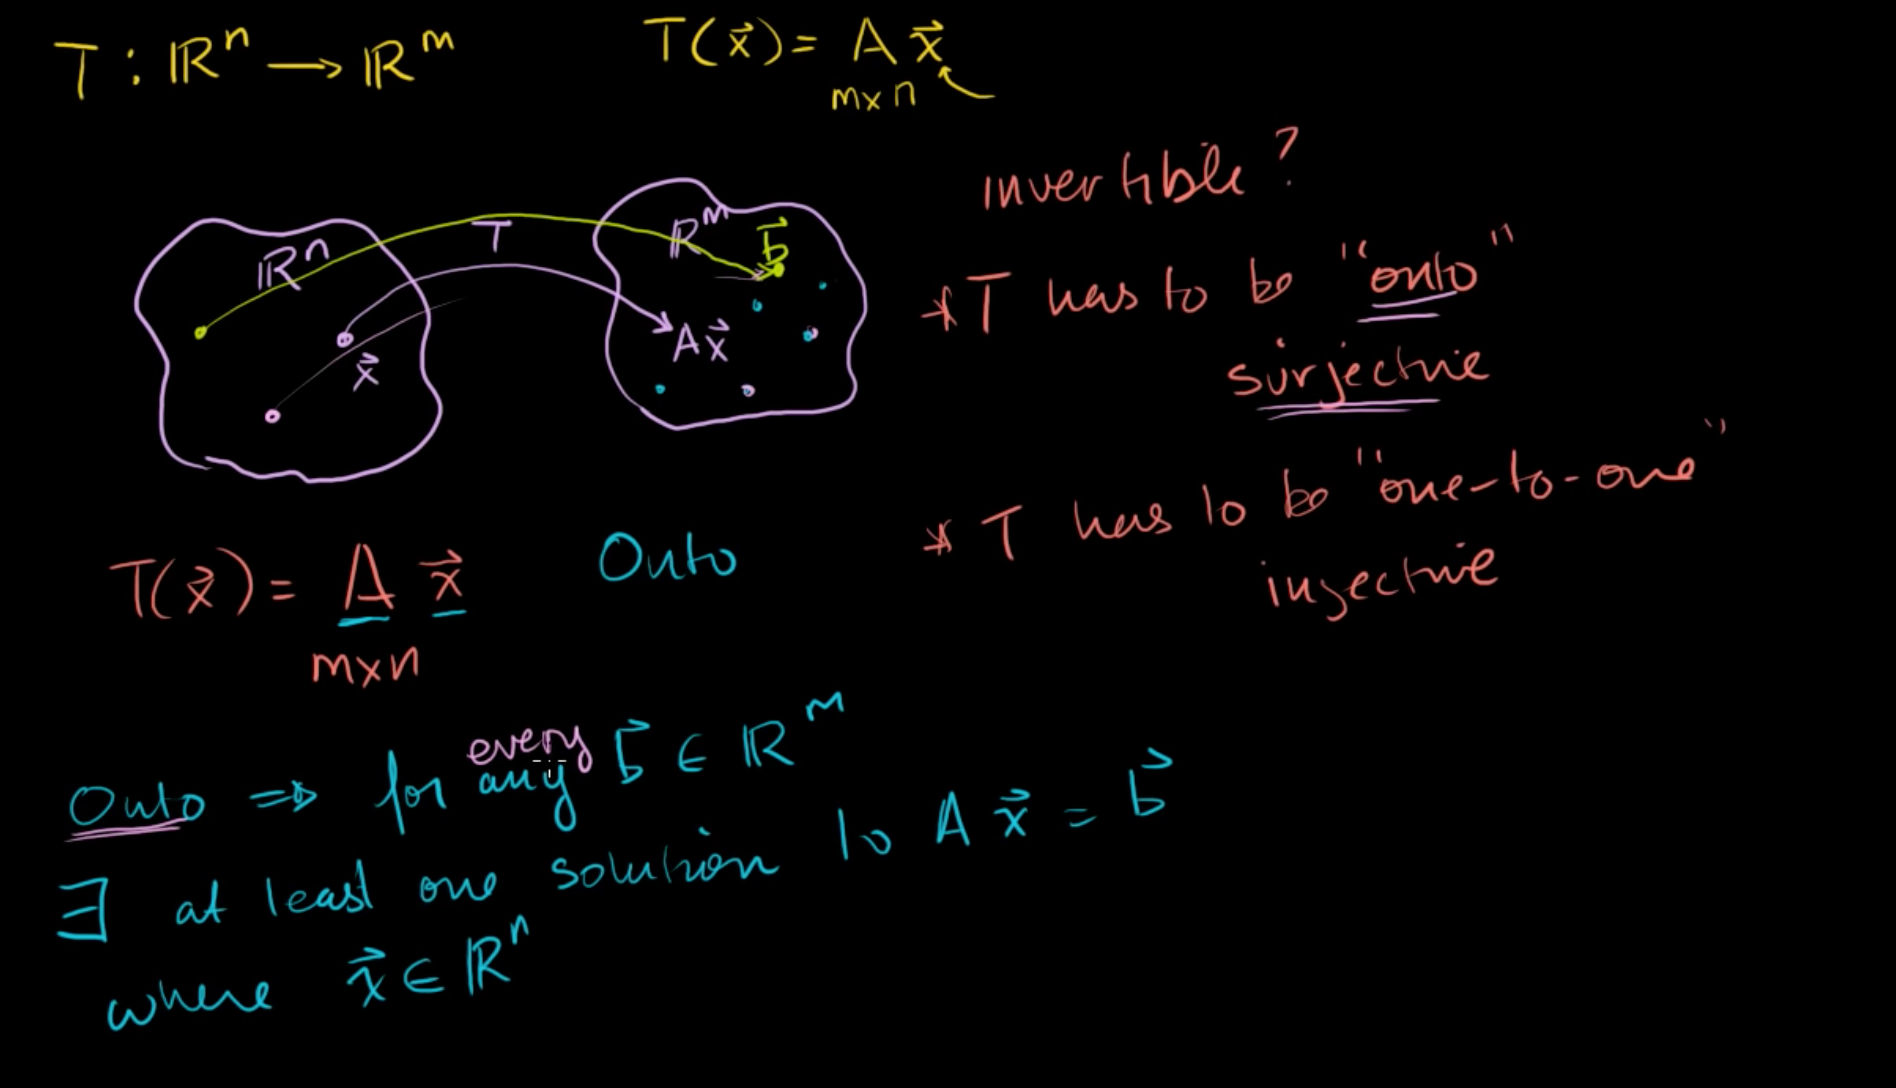 T : ℝⁿ → ℝᵐ
T(x⃗) = A x⃗
m×n
invertible?
ℝⁿ
T
ℝᵐ
b⃗
x⃗
Ax⃗
* T has to be "onto"
surjective
* T has to be "one-to-one"
injective
T(x⃗) = A x⃗
m×n
Onto
every
Onto ⇒ for any b⃗ ∈ ℝᵐ
∃ at least one solution to A x⃗ = b⃗
where x⃗ ∈ ℝⁿ